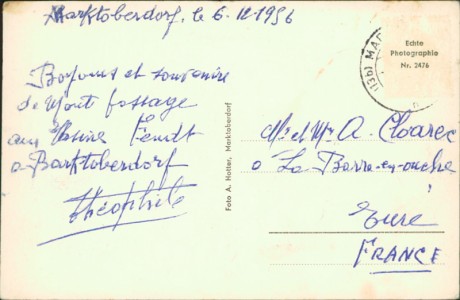 Marktoberdorf, le 6-12-1956
Bonjour et souvenire
de mont passage
aux Usine Fendt
a Barktoberdorf
Théophile
Foto A. Holter, Marktoberdorf
(13b) MAR
Echte
Photographie
Nr. 2476
Mr et Me A. Cloarec
a La Barre-en-ouche
Eure
FRANCE